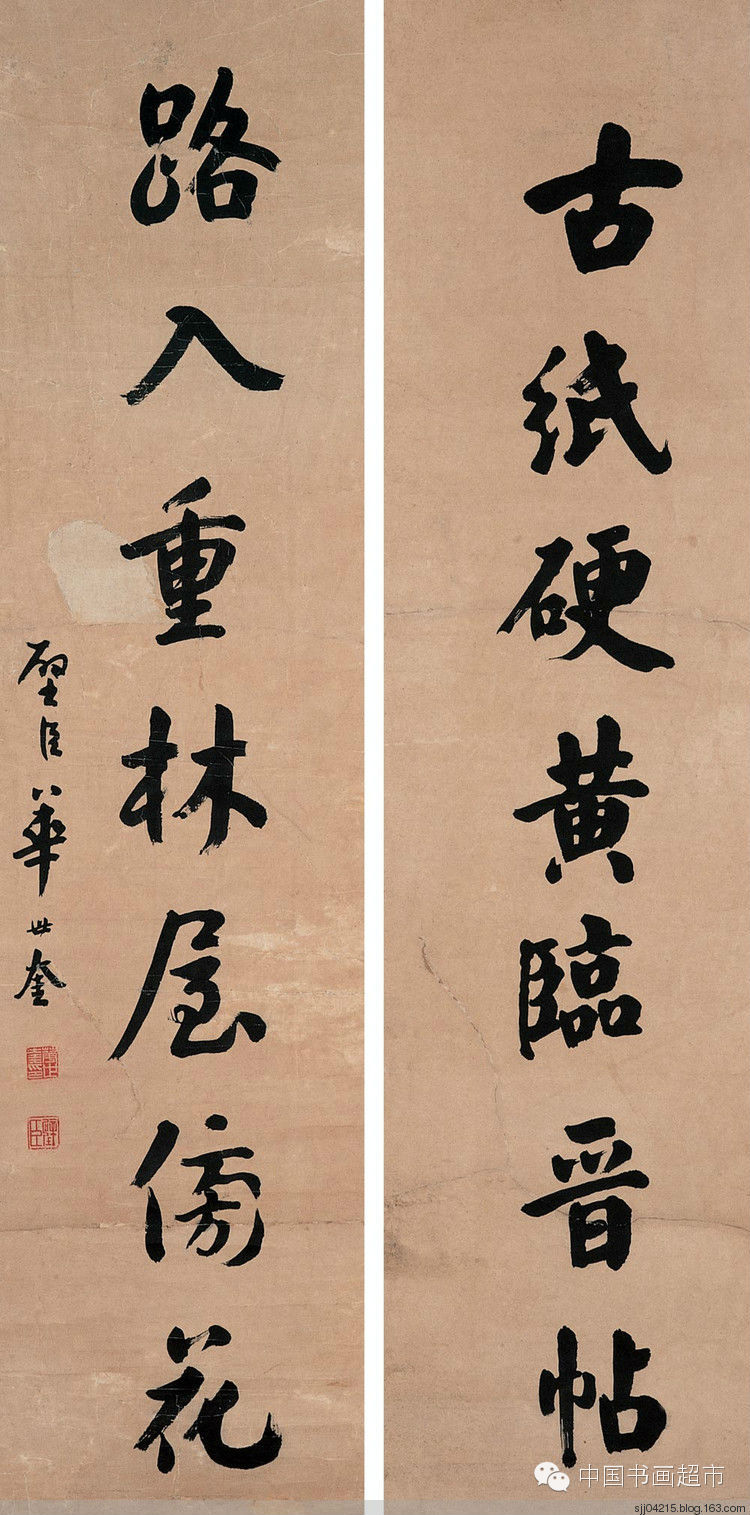 古紙硬黄臨晋帖
路入重林屋傍花
壁臣華世奎
中国书画超市
sjj04215.blog.163.com